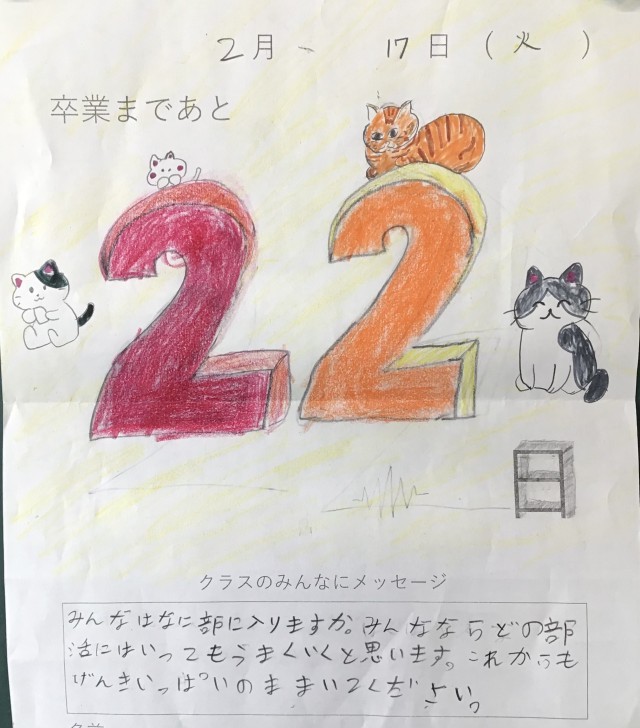 2月 17日 (火)
卒業まであと
22
日
クラスのみんなにメッセージ
みんなはなに部に入りますか。みんなならどの部
活にはいってもうまくいくと思います。これからも
げんきいっぱいのままいてください。